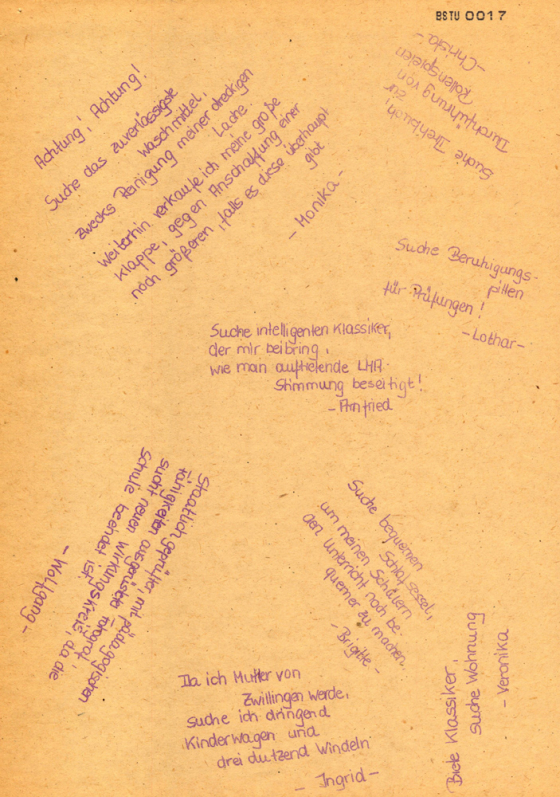 BSTU 0017
Achtung! Achtung!
Suche das zuverlässigste
Waschmittel,
zwecks Reinigung meiner dreckigen
Lache
weiterhin verkaufe ich meine große
Klappe, gegen Anschaffung einer
noch größeren, falls es diese überhaupt
gibt
- Monika -
Suche Drehbuch,
zur
Durchführung von
Rollenspielen
- Christa -
Suche Beruhigungs-
pillen
für Prüfungen!
- Lothar -
Suche intelligenten Klassiker,
der mir beibring,
wie man auftretende LMA-
Stimmung beseitigt!
- Annfried
Staatlich geprüfter, mit pädagogischen
Fähigkeiten ausgerüstete
sucht neuen Wirkungskreis, da die
Schule beendet ist.
- Wolfgang -
Suche bequemen
Schlafsessel,
um meinen Schülern
den Unterricht noch be
quemer zu machen.
- Brigitte -
Da ich Mutter von
Zwillingen werde,
suche ich dringend
Kinderwagen und
drei dutzend Windeln
- Ingrid -
Biete Klassiker,
suche Wohnung
- Veronika